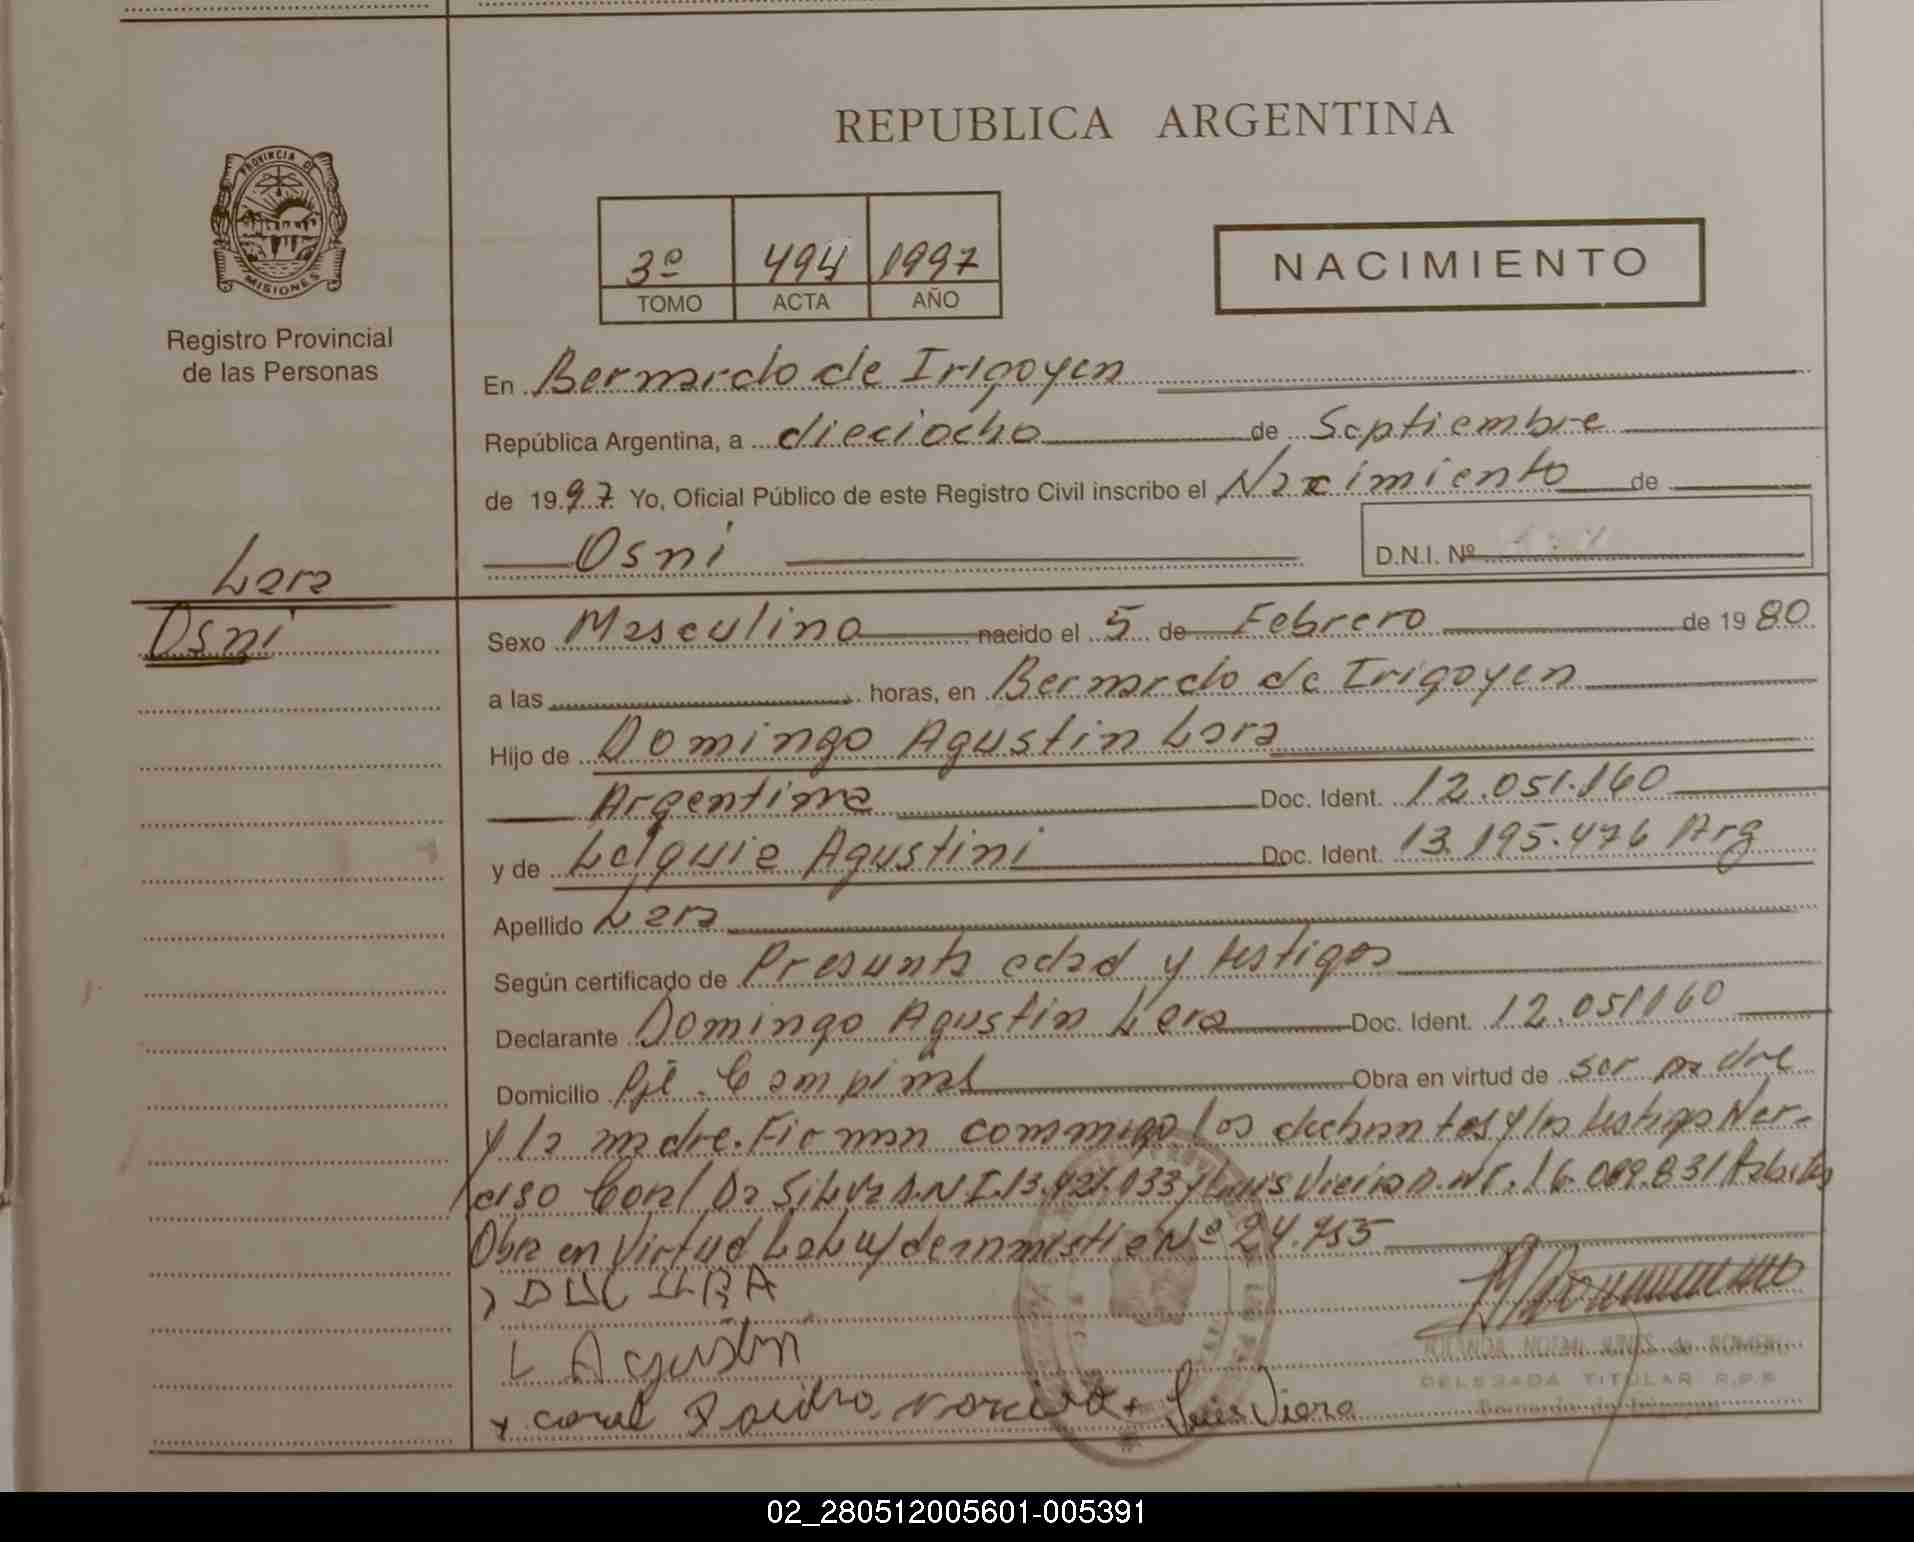 REPUBLICA ARGENTINA
PROVINCIA DE MISIONES
Registro Provincial
de las Personas
3º 494 1997
TOMO ACTA AÑO
NACIMIENTO
En Bernardo de Irigoyen
República Argentina, a dieciocho de Septiembre
de 1997 Yo, Oficial Público de este Registro Civil inscribo el Nacimiento de
Osni D.N.I. Nº
Lara
Osni
Sexo Masculino nacido el 5 de Febrero de 1980
a las horas, en Bernardo de Irigoyen
Hijo de Domingo Agustin Lara
Argentina Doc. Ident. 12.051.160
y de Agustini Doc. Ident. 13.195.476 Arg
Apellido Lara
Según certificado de Presunta edad y testigos
Declarante Domingo Agustin Lara Doc. Ident. 12.051160
Domicilio Pje. Campinas Obra en virtud de ser padre
y la madre. Firman conmigo los y los testigos Nar-
ciso Coral Da Silva D.N.I. 13. .033 y Luis Vieira D.N.I. 16.009.831
Obra en Virtud La Ley de amnistia Nº 24.755
L Agustin
x coral Luis Viera
NOEMI de ROMERO
DELEGADA TITULAR R.P.P.
Bernardo de Irigoyen
02_280512005601-005391